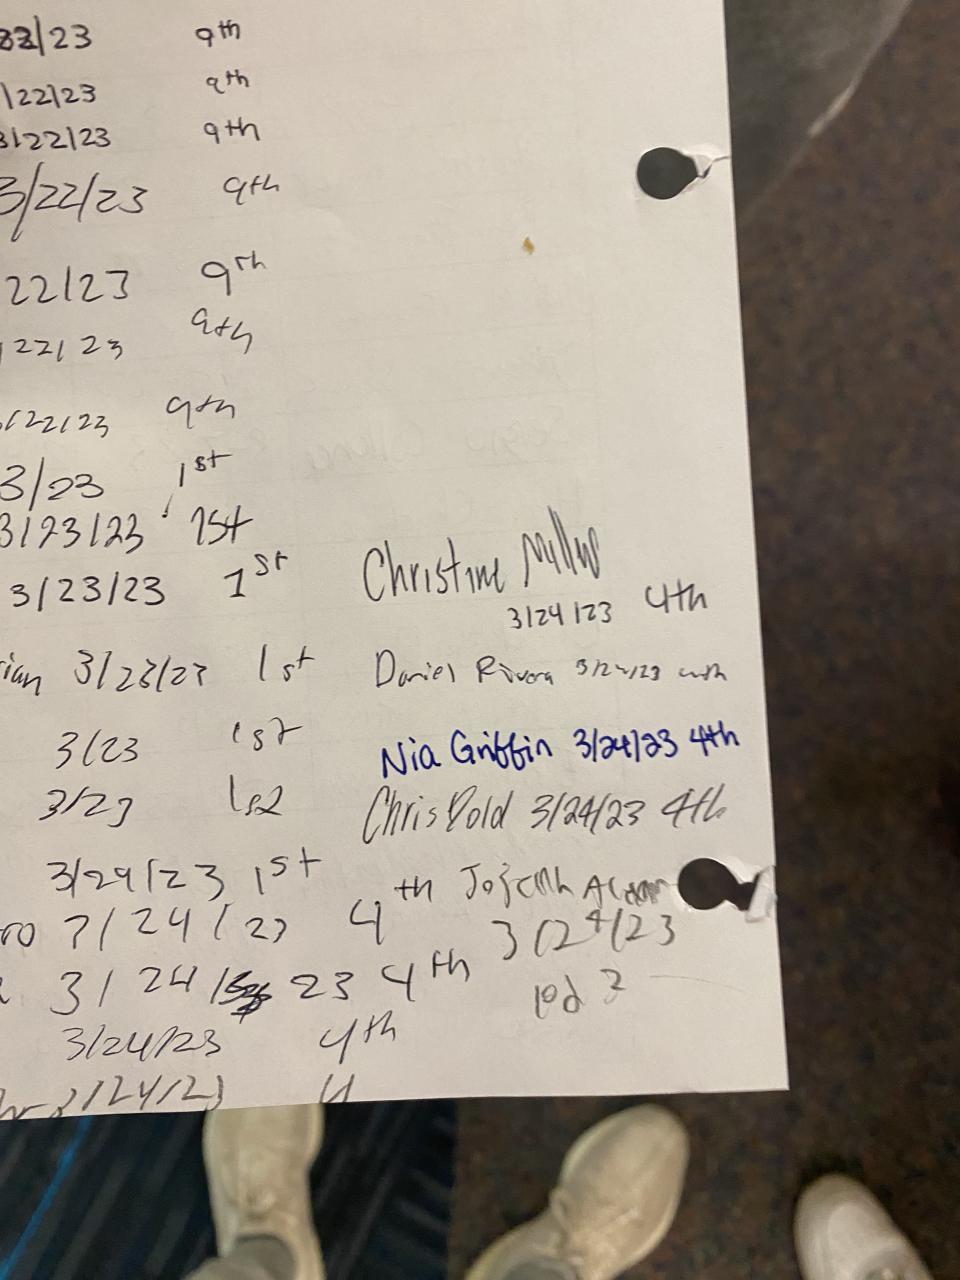 /23 9th
/22/23 9th
3/22/23 9th
3/22/23 9th
22/23 9th
22/23 9th
/22/23 9th
3/23 1st
3/23/23 1st
3/23/23 1st Christine
3/24/23 4th
ian 3/23/23 1st Daniel Rivera
3/23 1st Nia Griffin 3/24/23 4th
3/23 Chris Dold 3/24/23 4th
3/29/23 1st
ro 7/24/23 4th
3/24/23
3/24/ 23 4th
3/24/23 4th
/24/23 4